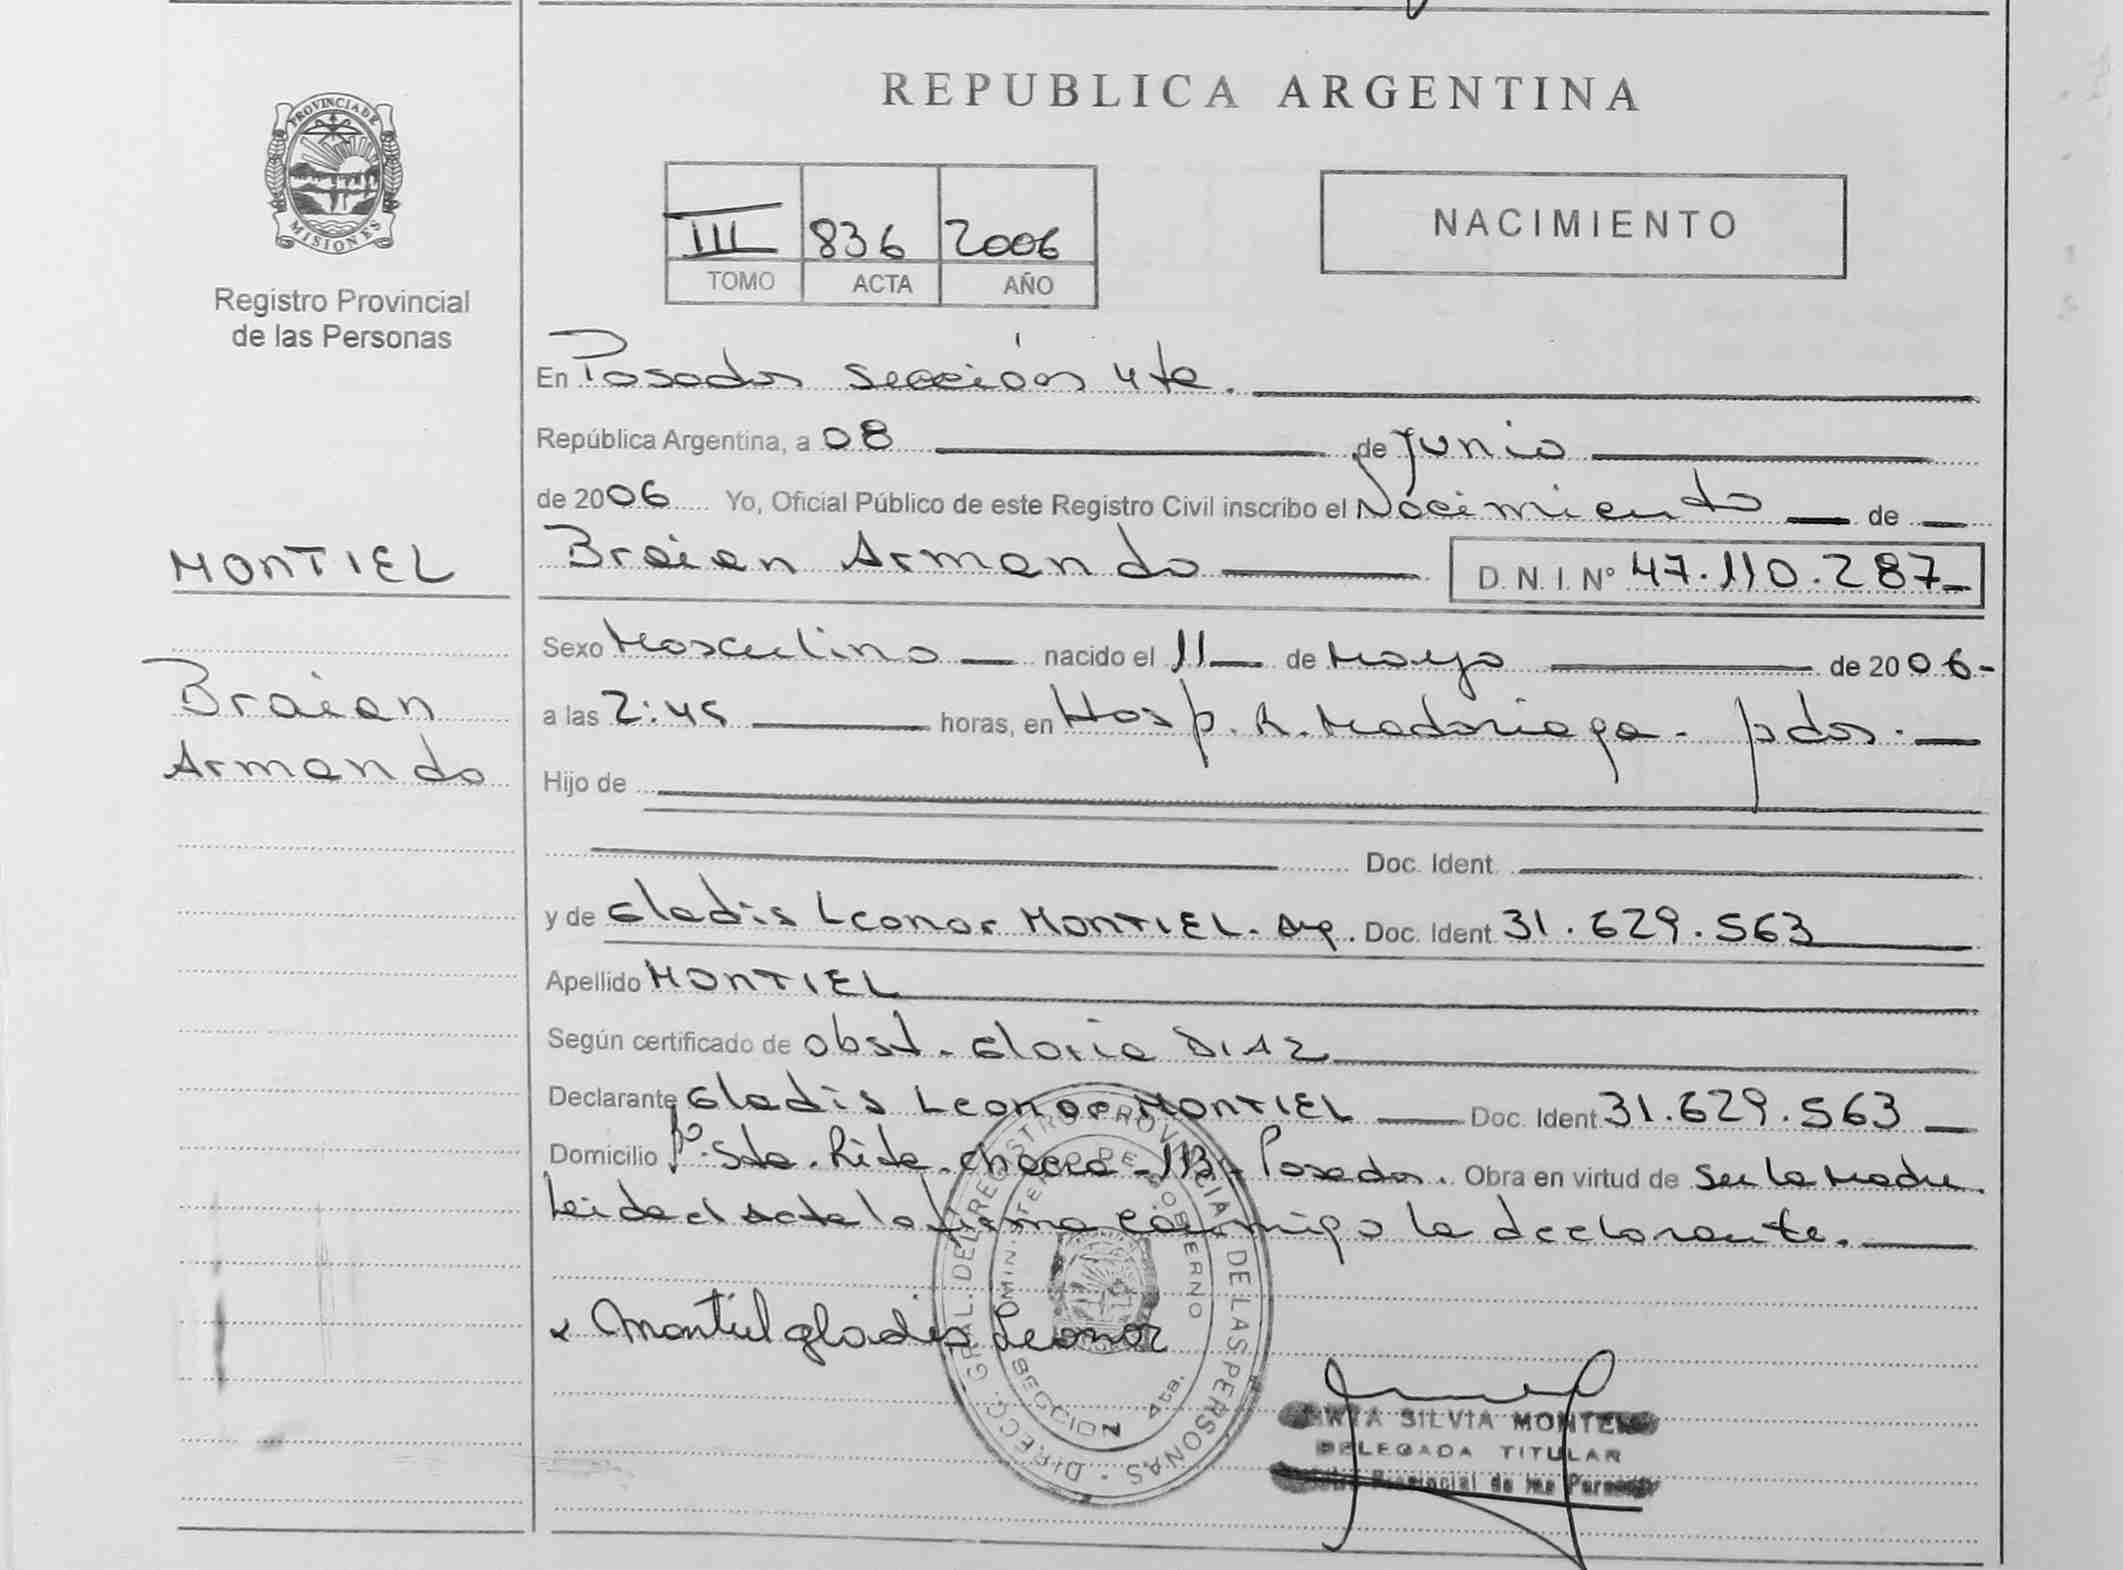 PROVINCIA DE
MISIONES
Registro Provincial
de las Personas
MONTIEL
Braian
Armando
REPUBLICA ARGENTINA
III 836 2006
TOMO ACTA AÑO
NACIMIENTO
En Posadas sección 4ta.
República Argentina, a 08 de Junio
de 2006 Yo, Oficial Público de este Registro Civil inscribo el Nacimiento de
Braian Armando D. N. I. Nº 47.110.287
Sexo Masculino nacido el 11 de Mayo de 2006-
a las 2:45 horas, en Hosp. R. Madariaga - pdas.
Hijo de
Doc. Ident.
y de Gladis Leonor MONTIEL. Arg. Doc. Ident. 31.629.563
Apellido MONTIEL
Según certificado de Obst. Gloria DIAZ
Declarante Gladis Leonor MONTIEL Doc. Ident. 31.629.563
Domicilio Bº. Sta. Rita. chacra - 113 - Posadas. Obra en virtud de ser la Madre.
Leida el Acta la firma conmigo la declarante.
x Montiel gladis Leonor
DIRECC. GRAL. DEL REGISTRO PROVINCIAL DE LAS PERSONAS
MINISTERIO DE GOBIERNO
SECCION 4ta.
SILVIA
DELEGADA TITULAR
Provincial de las Personas